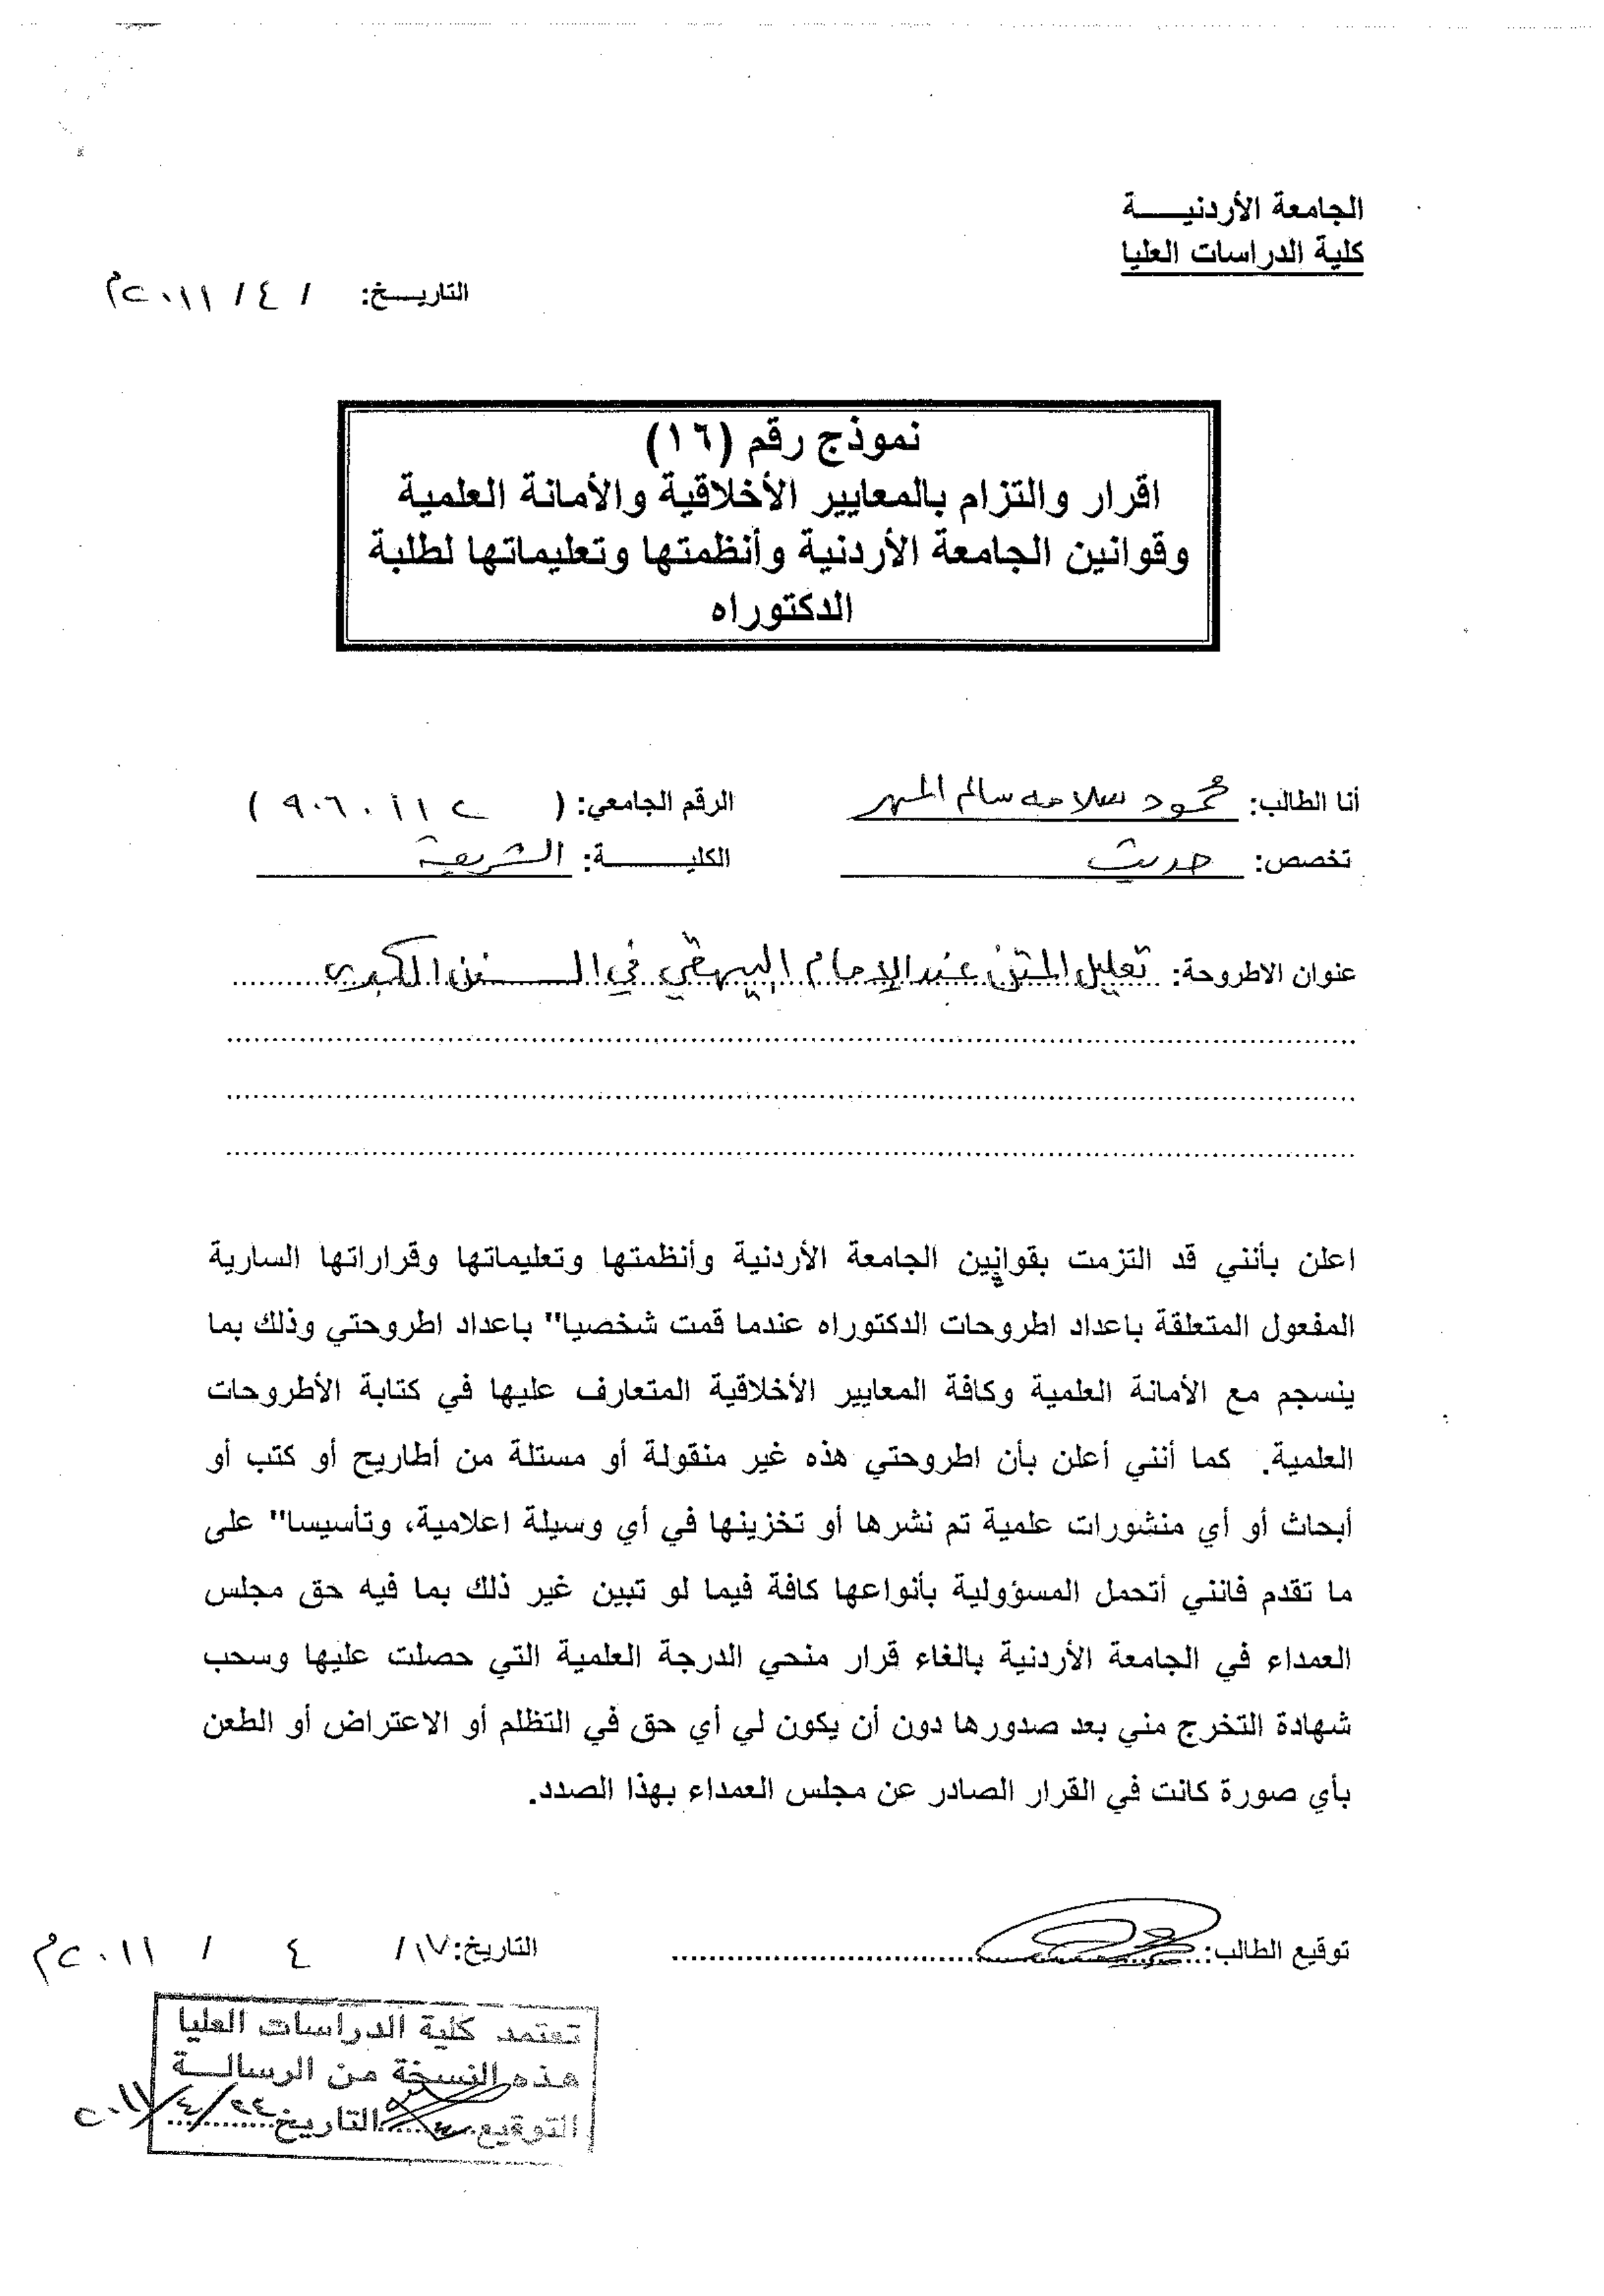 الجامعة الأردنيـــة
كلية الدراسات العليا
التاريـــخ: / ٤ / ٢٠١١م
نموذج رقم (١٦)
اقرار والتزام بالمعايير الأخلاقية والأمانة العلمية
وقوانين الجامعة الأردنية وأنظمتها وتعليماتها لطلبة
الدكتوراه
أنا الطالب: محمود سلامه سالم الهر الرقم الجامعي: ( ٩٠٦٠١١٢ )
تخصص: حديث الكليـــــة: الشريعة
عنوان الاطروحة: تعليل المتن عند الإمام البيهقي في السنن الكبرى
اعلن بأنني قد التزمت بقوانين الجامعة الأردنية وأنظمتها وتعليماتها وقراراتها السارية
المفعول المتعلقة باعداد اطروحات الدكتوراه عندما قمت شخصيا" باعداد اطروحتي وذلك بما
ينسجم مع الأمانة العلمية وكافة المعايير الأخلاقية المتعارف عليها في كتابة الأطروحات
العلمية. كما أنني أعلن بأن اطروحتي هذه غير منقولة أو مستلة من أطاريح أو كتب أو
أبحاث أو أي منشورات علمية تم نشرها أو تخزينها في أي وسيلة اعلامية، وتأسيسا" على
ما تقدم فانني أتحمل المسؤولية بأنواعها كافة فيما لو تبين غير ذلك بما فيه حق مجلس
العمداء في الجامعة الأردنية بالغاء قرار منحي الدرجة العلمية التي حصلت عليها وسحب
شهادة التخرج مني بعد صدورها دون أن يكون لي أي حق في التظلم أو الاعتراض أو الطعن
بأي صورة كانت في القرار الصادر عن مجلس العمداء بهذا الصدد.
توقيع الطالب: التاريخ: ١٧/ ٤ / ٢٠١١م
تعتمد كلية الدراسات العليا
هذه النسخة من الرسالـــة
التوقيع التاريخ ٢٤/٤/٢٠١١